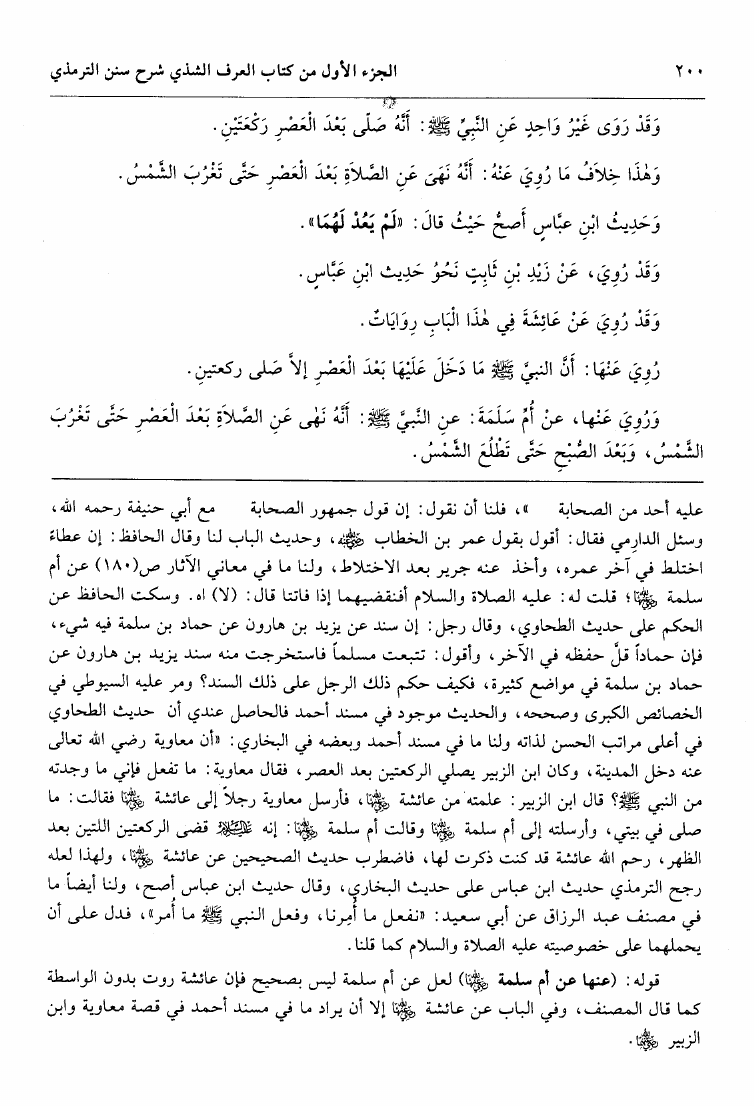 ٢٠٠ الجزء الأول من كتاب العرف الشذي شرح سنن الترمذي
وَقَدْ رَوَى غَيْرُ وَاحِدٍ عَنِ النَّبِيِّ ﷺ: أَنَّهُ صَلّى بَعْدَ الْعَصْرِ رَكْعَتَيْنِ.
وَهْذَا خِلاَفُ مَا رُوِيَ عَنْهُ: أَنَّهُ نَهَى عَنِ الصَّلاَةِ بَعْدَ الْعَصْرِ حَتَّى تَغْرُبَ الشَّمْسُ.
وَحَدِيثُ ابْنِ عبَّاسٍ أَصحُّ حَيْثُ قالَ: «لَمْ يَعُدْ لَهُمَا».
وَقَدْ رُوِيَ، عَنْ زَيْدِ بْنِ ثَابِتٍ نَحْوُ حَدِيث ابْنِ عَبَّاسٍ.
وَقَدْ رُوِيَ عَنْ عَائِشَةَ فِي هٰذَا الْبَابِ رِوَايَاتٌ.
رُوِيَ عَنْهَا: أَنَّ النبيَّ ﷺ مَا دَخَلَ عَلَيْهَا بَعْدَ الْعَصْرِ إلاَّ صَلى ركعتينِ.
وَرُوِيَ عَنْها، عنْ أُمِّ سَلَمَةَ: عنِ النَّبيَّ ﷺ: أَنَّهُ نَهٰى عَنِ الصَّلاَةِ بَعْدَ الْعَصْرِ حَتَّى تَغْرُبَ
الشَّمْسُ، وَبَعْدَ الصُّبْحِ حَتَّى تَطْلُعَ الشَّمْسُ.
عليه أحد من الصحابة »، فلنا أن نقول: إن قول جمهور الصحابة مع أبي حنيفة رحمه الله،
وسئل الدارِمي فقال: أقول بقول عمر بن الخطاب رضي الله عنه، وحديث الباب لنا وقال الحافظ: إن عطاءً
اختلط في آخر عمره، وأخذ عنه جرير بعد الاختلاط، ولنا ما في معاني الآثار ص(١٨٠) عن أم
سلمة رضي الله عنها؛ قلت له: عليه الصلاة والسلام أفنقضيهما إذا فاتتا قال: (لا) اه. وسكت الحافظ عن
الحكم على حديث الطحاوي، وقال رجل: إن سند عن يزيد بن هارون عن حماد بن سلمة فيه شيء،
فإن حماداً قلَّ حفظه في الآخر، وأقول: تتبعت مسلماً فاستخرجت منه سند يزيد بن هارون عن
حماد بن سلمة في مواضع كثيرة، فكيف حكم ذلك الرجل على ذلك السند؟ ومر عليه السيوطي في
الخصائص الكبرى وصححه، والحديث موجود في مسند أحمد فالحاصل عندي أن حديث الطحاوي
في أعلى مراتب الحسن لذاته ولنا ما في مسند أحمد وبعضه في البخاري: «أن معاوية رضي الله تعالى
عنه دخل المدينة، وكان ابن الزبير يصلي الركعتين بعد العصر، فقال معاوية: ما تفعل فإني ما وجدته
من النبي ﷺ؟ قال ابن الزبير: علمته من عائشة رضي الله عنها، فأرسل معاوية رجلاً إلى عائشة رضي الله عنها فقالت: ما
صلى في بيتي، وأرسلته إلى أم سلمة رضي الله عنها وقالت أم سلمة رضي الله عنها: إنه عليه السلام قضى الركعتين اللتين بعد
الظهر، رحم الله عائشة قد كنت ذكرت لها، فاضطرب حديث الصحيحين عن عائشة رضي الله عنها، ولهذا لعله
رجح الترمذي حديث ابن عباس على حديث البخاري، وقال حديث ابن عباس أصح، ولنا أيضاً ما
في مصنف عبد الرزاق عن أبي سعيد: «نفعل ما أُمِرنا، وفعل النبي ﷺ ما أُمر»، فدل على أن
يحملهما على خصوصيته عليه الصلاة والسلام كما قلنا.
قوله: (عنها عن أم سلمة رضي الله عنها) لعل عن أم سلمة ليس بصحيح فإن عائشة روت بدون الواسطة
كما قال المصنف، وفي الباب عن عائشة رضي الله عنها إلا أن يراد ما في مسند أحمد في قصة معاوية وابن
الزبير رضي الله عنهما.